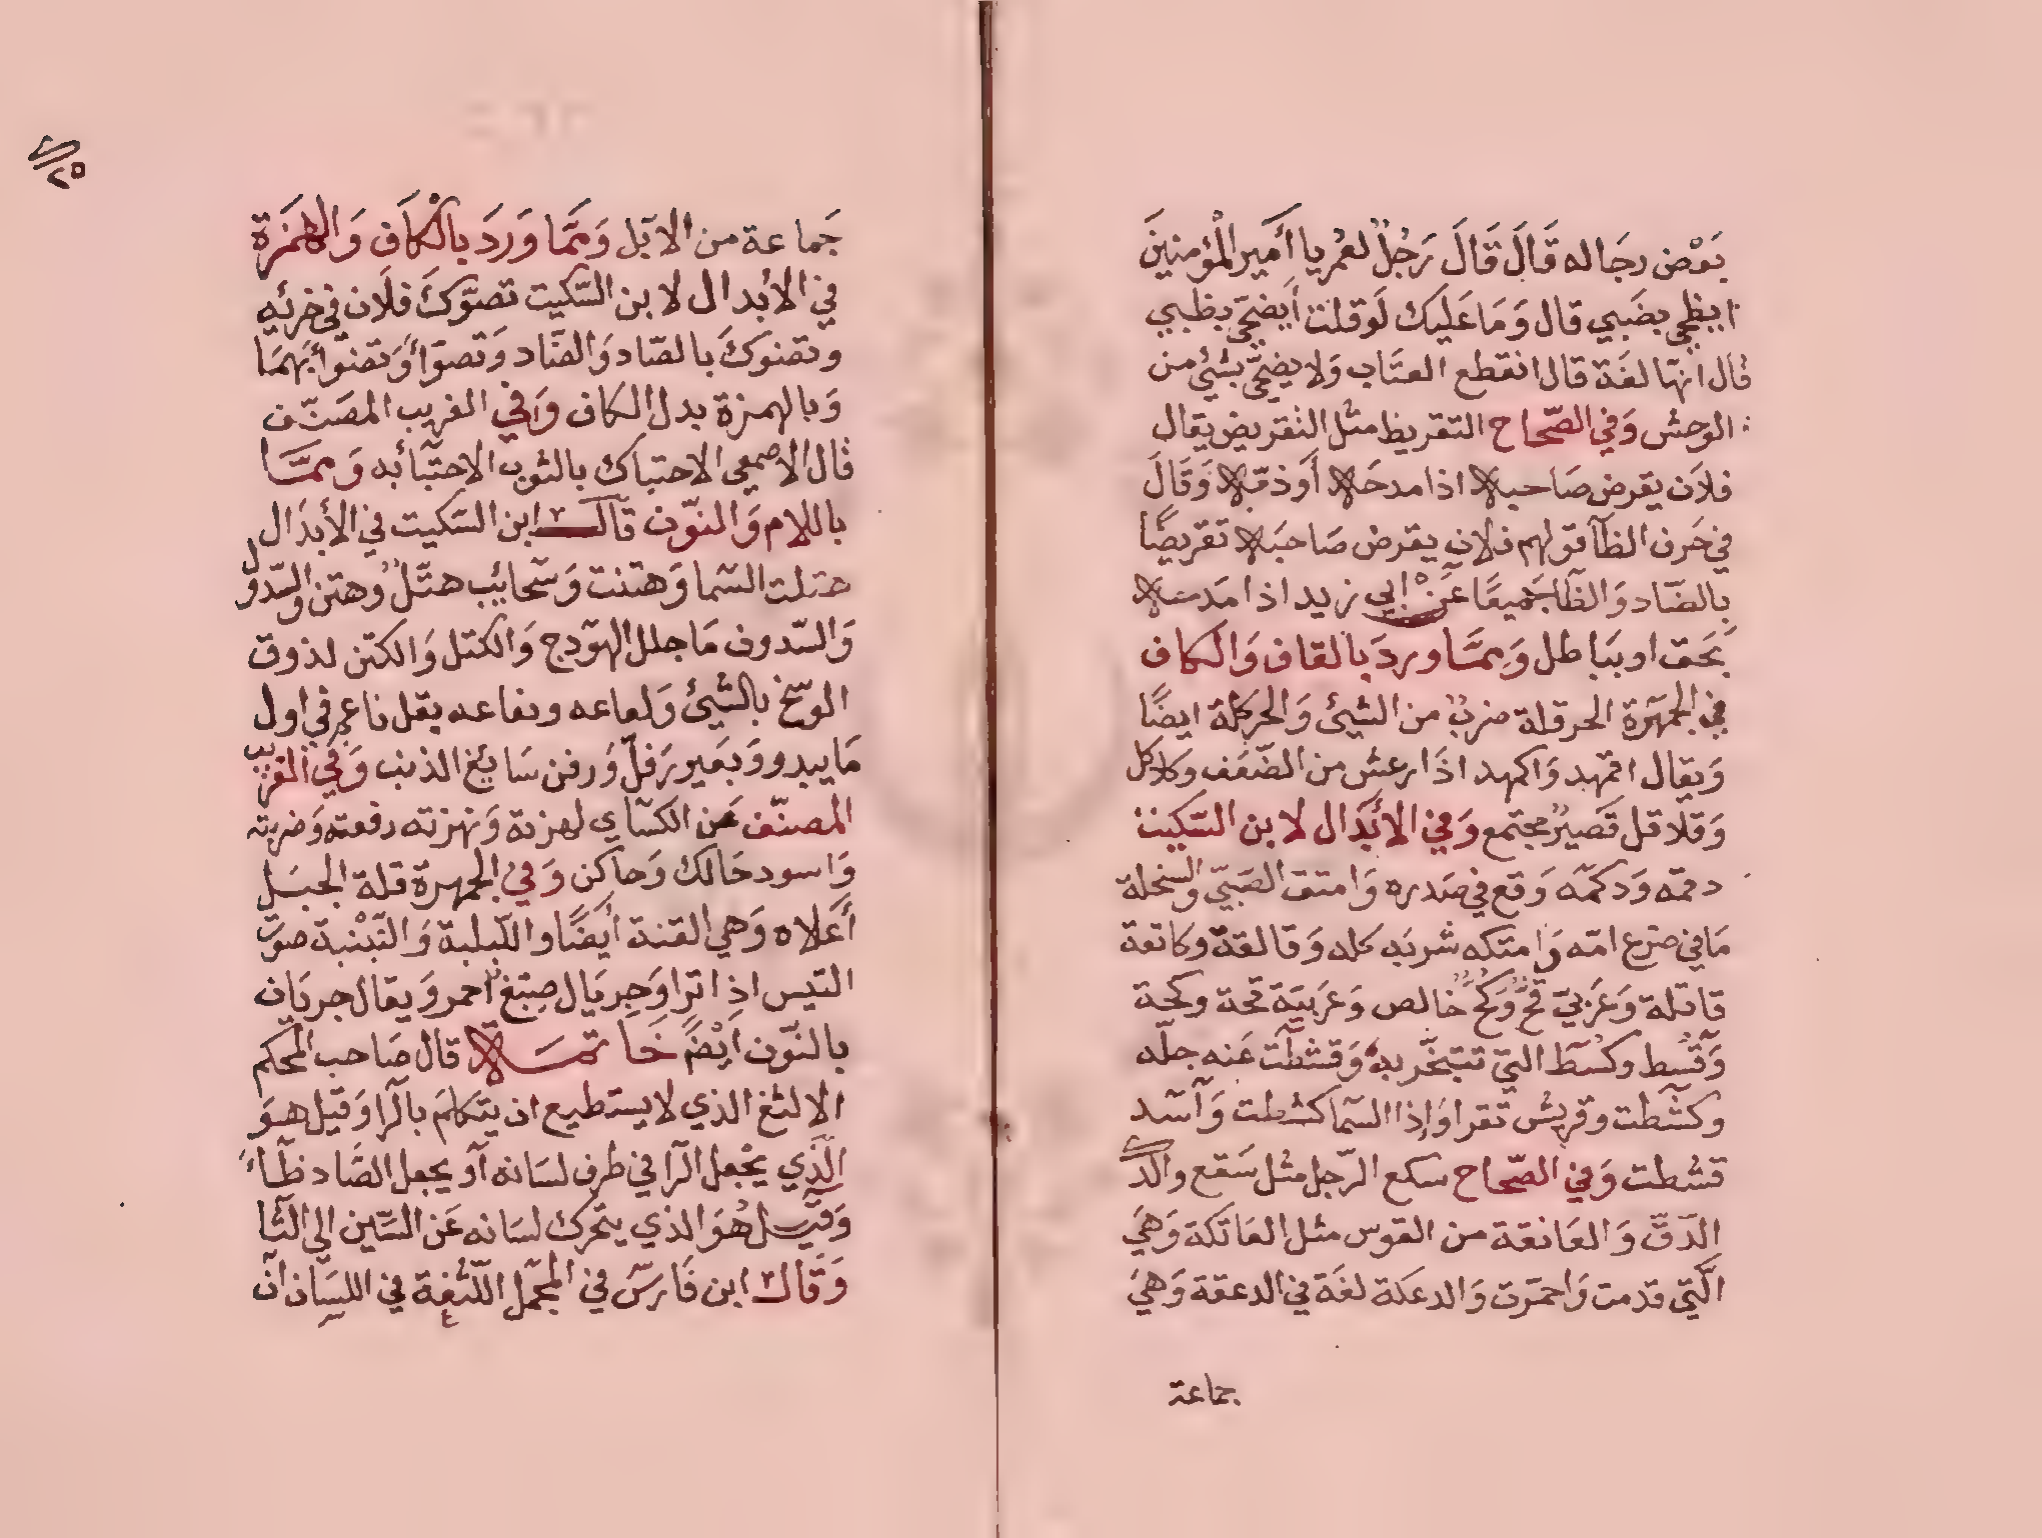 بَعْض رجَاله قَالَ قَالَ رَجُلٌ لعُمر يا أَمَير المؤمنينَ
ايظحي بضَبي قال وَمَا عَليَك لَو قلت أَيضحّي بظبي
قال انهّا لغَة قال انقطع العتَاب وَلا يضحيّ بشئ من
الوحش وَفي الصّحاح التقريظ مثل التقريض يقال
فلاَن يقرض صَاحبه اذا مدحَه أَو ذمّه وَقَالَ
في حَرف الظآ قولهم فلان يقرض صَاحبَه تقريضًا
بالضّاد وَالظّا جَميعًا عَنْ ابي زيد اذا مَدحه
بَحَق او ببَاطل وَممّا وردَ بالقاف وَالكاف
في الجمهَرة الحرقلة ضربٌ من الشئ وَالحركلة ايضًا
وَيقال اقمهد وَاكمهد اذَا رعش من الضّعَف وكلاكل
وَقلاقل قَصيرٌ مجتمع وَفي الأبَدَال لابن السّكيت
دقمّه وَدكمّه وَقع في صَدره وَامتق الصَبّي والسخلة
مَا في ضرع امّه وَامتكه شربَه كله وَقالقعة وكاتعة
قاتلة وَعَرَبيّ قحٌ وَكحٌ خالص وَعَربيَة قحة وكحة
وَقسُط وكسُط التي تتبخّر به وَقشطَت عَنه جلّه
وكشّطت وقريش تقرا وَإذا السّما كشطت وَآسد
قشطت وَفي الصّحاح سكع الرّجل مثل سَقع والد
الدّقّ وَالعَانقة من القوس مثل العَاتكة وَهيَ
الّتي قدمت وَاحمرّت وَالدعكة لغَة في الدعقة وَهيَ
جماعة
جَماعة من الابَل وَممّا وَردَ بالْكَاف وَالهمَزة
في الأبْدال لابن السّكيت تصوّكَ فلَان في خرئه
وتضوّكَ بالصّاد وَالضّاد وَتصوّأ وَتضوّأ بَهمَا
وَبالهمزة بدل الكاف وَفي الغريب المصَنّف
قال الاصمعي الاحتباك بالثوب الاحتبآئبه وَممّا
باللام وَالنوّن قآل ابن السّكيت في الأبدَال
هتلت السّما وَهتنت وَسّحايب هتّلٌ وُهتن والسّدول
وَالسّدون مَا جلل الهوّدج وَالكتل وَالكتن لذوق
الوسّخ بالشئ وَلعاعه ونعاعه بقل ناعم في اول
مَا يبدو وَبعَير رَفلّ وَرفن سَابغ الذنب وَفي الغريب
المصنّف عَن الكسّاي لهزته وَنهزته دفعته وَضربته
وَاسود حَالك وَحاكن وَفي الجمهرة قلة الجبَل
أَعَلاه وَهي القنة أيضًا واللّبلبة وَالنّبْنبة صوَت
التيس اذا نزا وَجريَال صِبغ أحمر وَيقال جريَان
بالنّون ايْضًا خَاتمَة قال صَاحب المحكم
الالثغ الذي لا يستطيع ان يتكلمَ بالرا وَقيل هوَ
الّذي يجْعل الرّا في طرف لسَانه آو يجعل الضّاد ظآء
وَقّيل هُوَ الذي يتحرك لسَانه عَن السّين الى الثّا
وَقال ابن فَارسّ في المجمّل اللّثغة في اللسّان ان